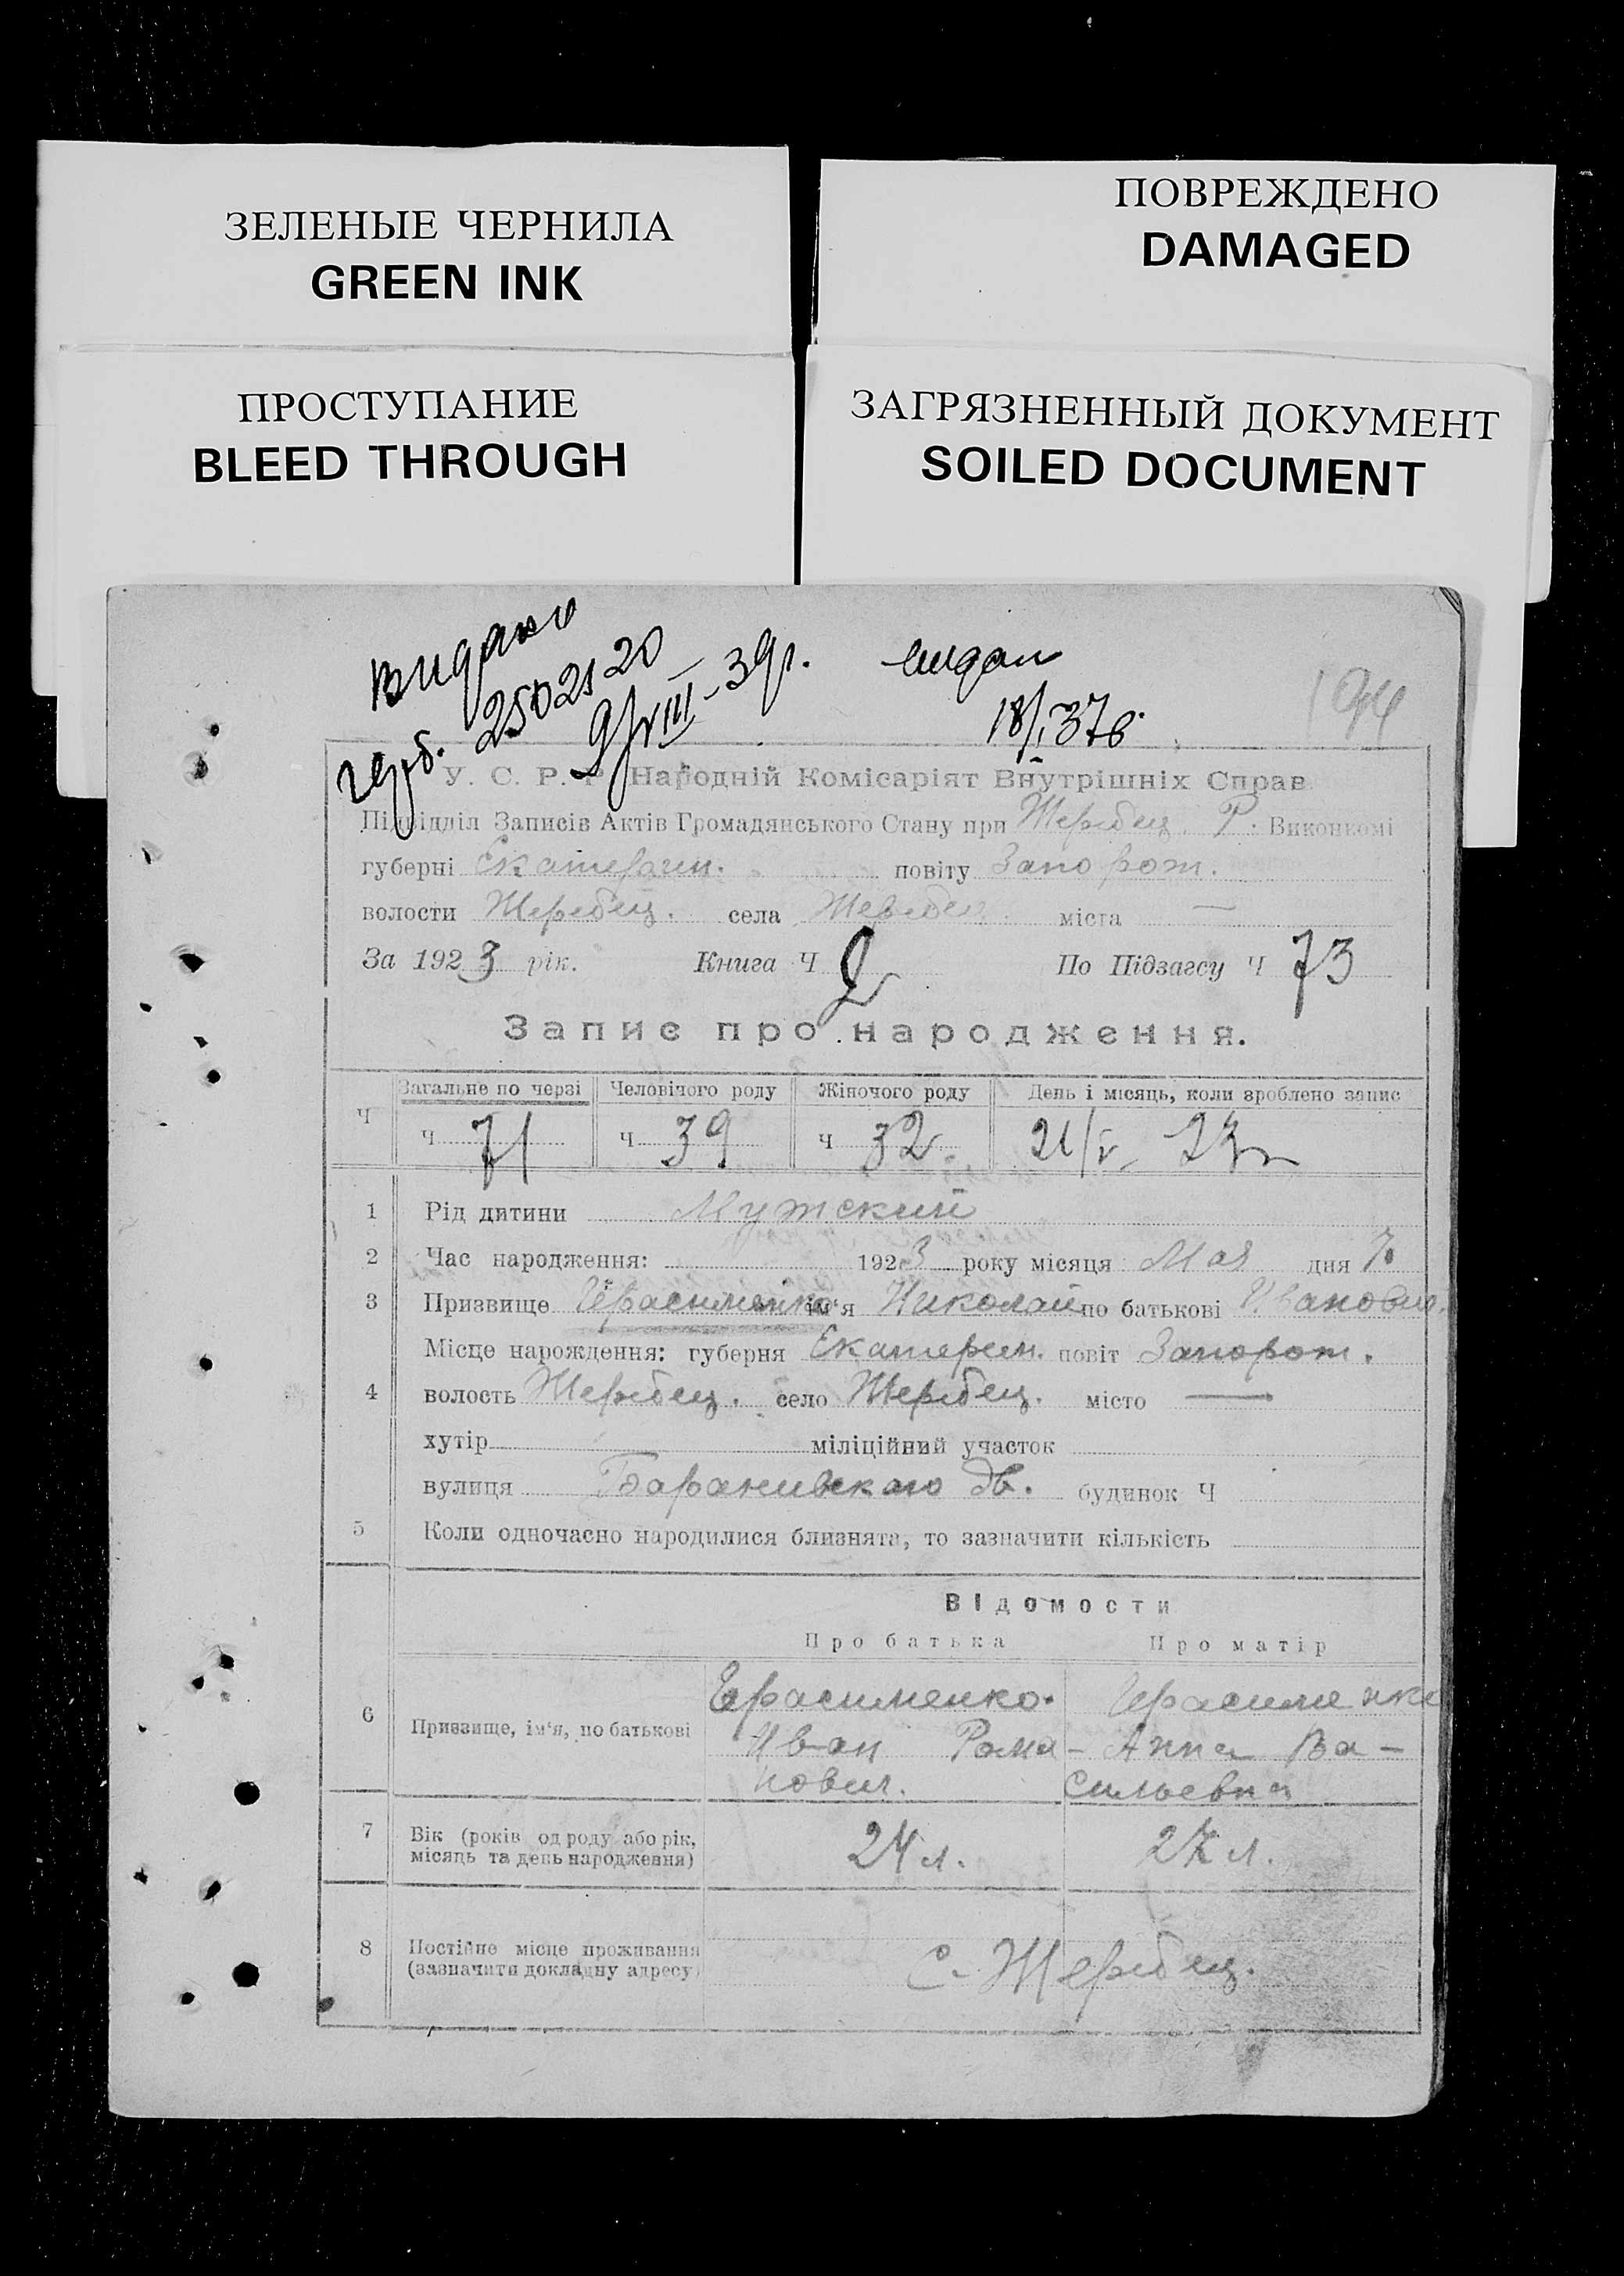 ЗЕЛЕНЫЕ ЧЕРНИЛА
GREEN INK
ПОВРЕЖДЕНО
DAMAGED
ПРОСТУПАНИЕ
BLEED THROUGH
ЗАГРЯЗНЕННЫЙ ДОКУМЕНТ
SOILED DOCUMENT
видано
2502120
9/VIII-39г.
видан
18/I 37
У. С. Р. Р. Народній Комісаріят Внутрішніх Справ
Підвідділ Записів Актів Громадянського Стану при Жеребец. Р. Виконкомі
губерні Екатерин. повіту Запорож.
волости Жеребец. села Жеребец. міста —
За 1923 рік. Книга Ч 2 По Підзагсу Ч 73
Запис про народження.
Ч Загальне по черзі Человічого роду Жіночого роду День і місяць, коли зроблено запис
Ч 71 Ч 39 Ч 32 21/V 23
1 Рід дитини Мужский
2 Час народження: 1923 року місяця Мая дня 7
3 Призвище Герасименко ім'я Николай по батькові Иванович
Місце нарождення: губерня Екатерин. повіт Запорож.
4 волость Жеребец. село Жеребец. місто —
хутір міліційний участок
вулиця будинок Ч
5 Коли одночасно народилися близнята, то зазначити кількість
Відомости
Про батька Про матір
6 Призвище, ім'я, по батькові Герасименко Иван Рома-нович. Герасименко Анна Ва-сильевна
7 Вік (років од роду або рік, місяць та день народження) 24 л. 27 л.
8 Постійне місце проживання (зазначити докладну адресу) с. Жеребец.